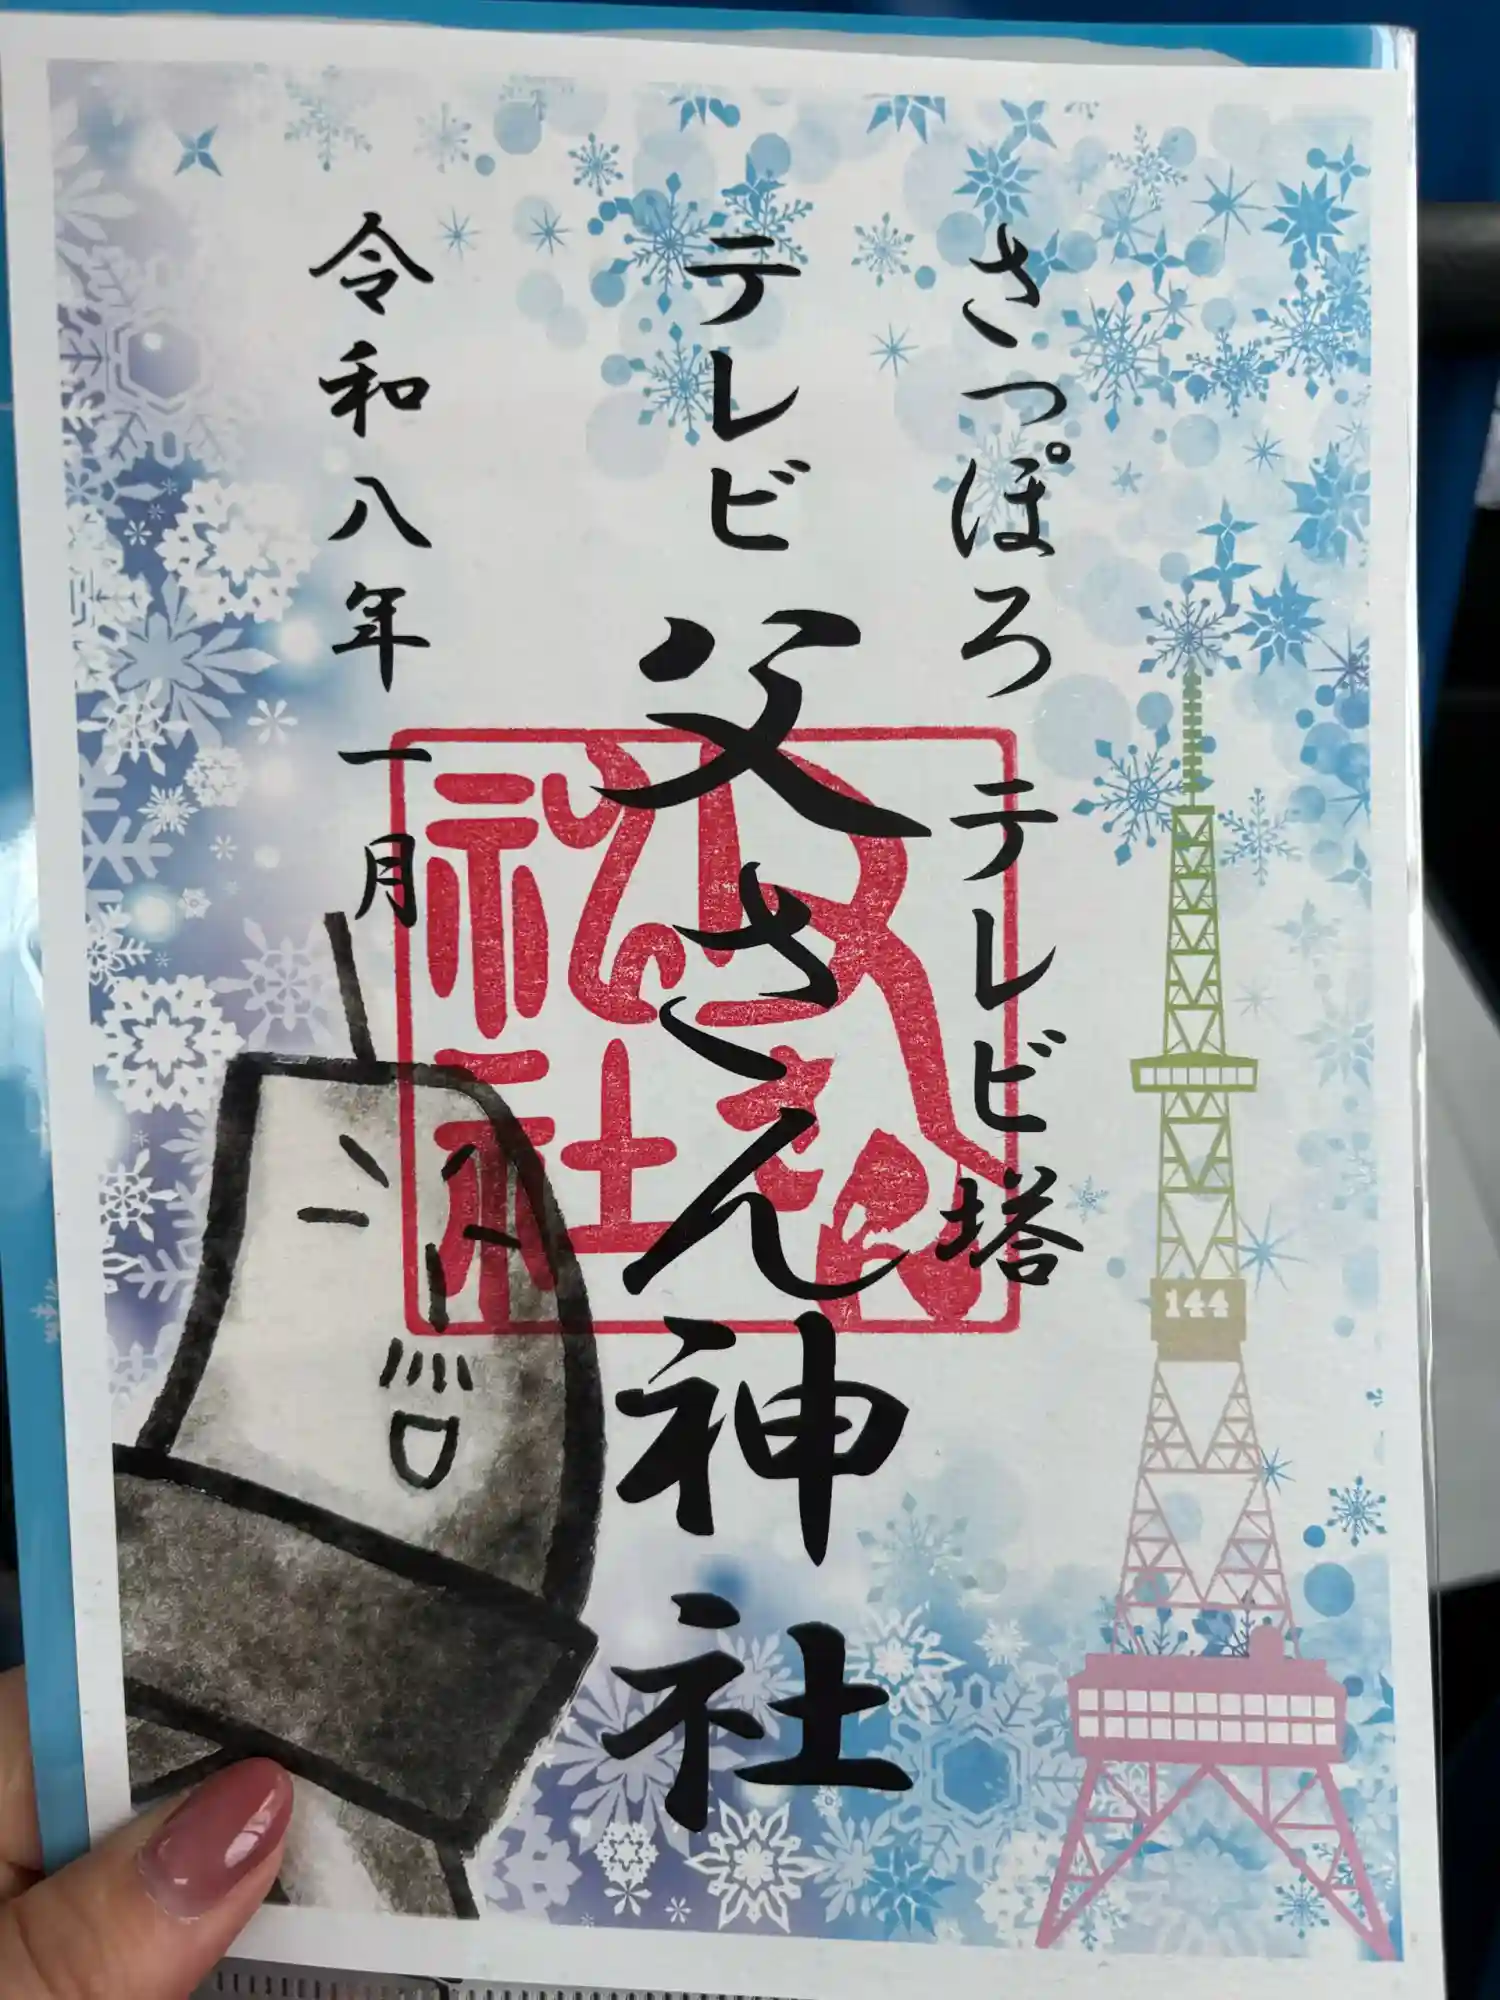 さっぽろ テレビ塔
テレビ父さん神社
令和八年一月
父さん
神社
144